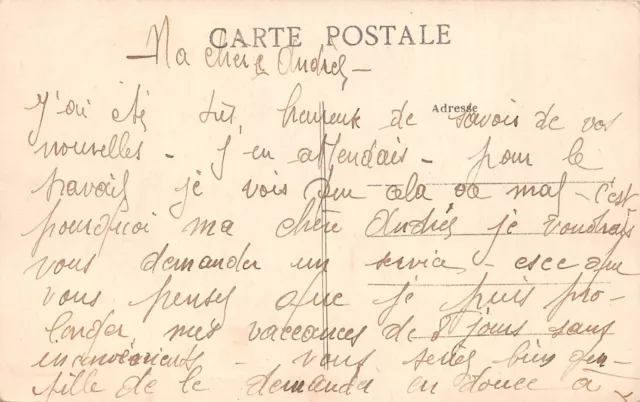 CARTE POSTALE
Ma chère Andrée,
Adresse
J'ai été très heureuse de savoir de vos
nouvelles - J'en attendais - pour le
travail je vois que cela va mal - c'est
pourquoi ma chère Andrée je voudrais
vous demander un service - esce que
vous pensez que je puis pro-
longer mes vaccances de 8 jours sans
inconvénients - vous seriez bien gen-
tille de le demander en douce à